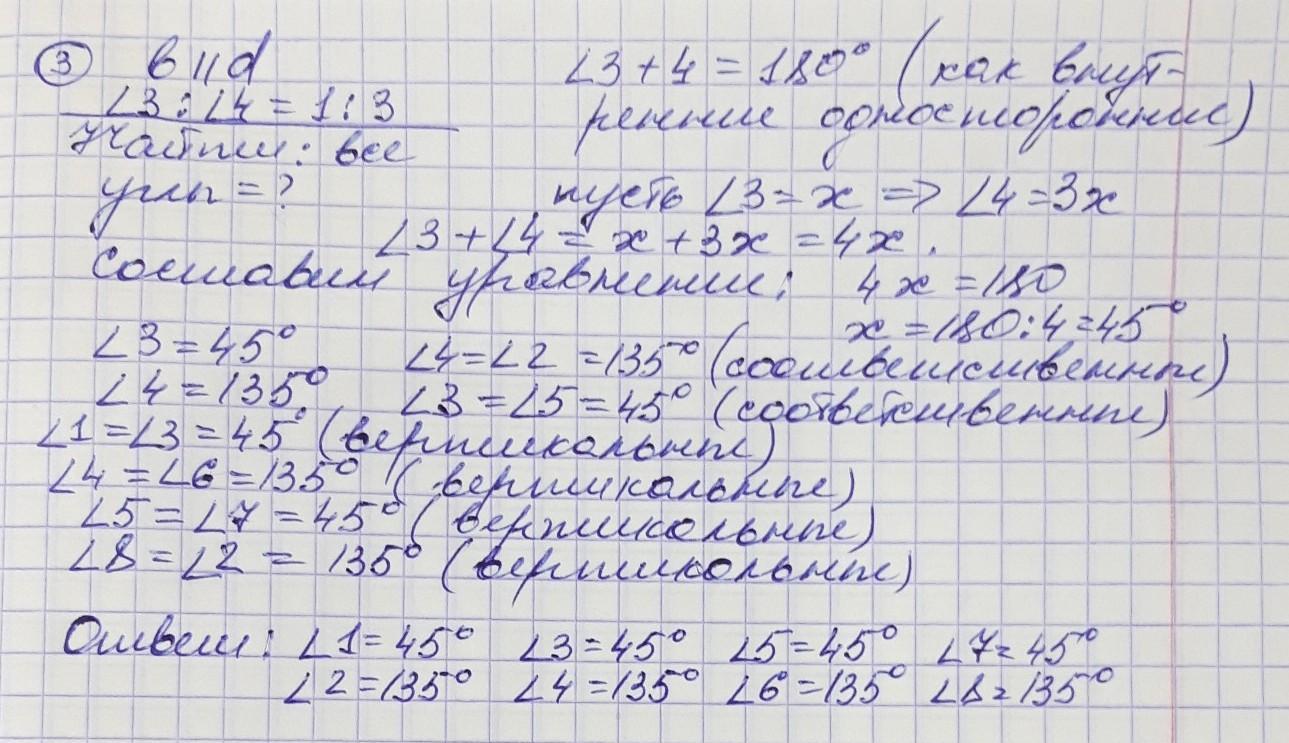 3 в || d
∠3 : ∠4 = 1 : 3
Найти: все
углы = ?
∠3 + 4 = 180° (как внут-
ренние односторонние)
пусть ∠3 = x => ∠4 = 3x
∠3 + ∠4 = x + 3x = 4x.
Составим уравнение: 4x = 180
x = 180 : 4 = 45°
∠3 = 45° ∠4 = ∠2 = 135° (соответственные)
∠4 = 135° ∠3 = ∠5 = 45° (соответственные)
∠1 = ∠3 = 45° (вертикальные)
∠4 = ∠6 = 135° (вертикальные)
∠5 = ∠7 = 45° (вертикальные)
∠8 = ∠2 = 135° (вертикальные)
Ответ: ∠1 = 45° ∠3 = 45° ∠5 = 45° ∠7 = 45°
∠2 = 135° ∠4 = 135° ∠6 = 135° ∠8 = 135°